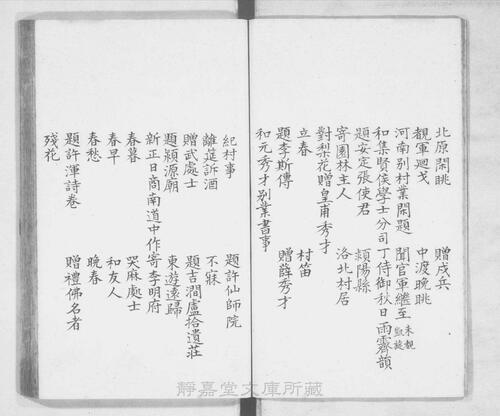 北原閑眺　贈戍兵
覩軍廻戈　中渡晩眺
河南別村業閑題　聞官軍繼至未覩凱旋
和集賢侯學士分司丁侍御秋日雨霽韻
題安定張使君　潁陽縣
寄園林主人　洛北村居
對梨花贈皇甫秀才
立春　村笛
題李斯傳　贈薛秀才
和元秀才別業書事
紀村事　題許仙師院
離筵訴酒　不寐
贈武處士　題吉澗盧拾遺莊
題潁源廟　東遊遠歸
新正日商南道中作寄李明府
春暮　哭麻處士
春早　和友人
春愁　晩春
題許渾詩卷　贈禮佛名者
殘花
靜嘉堂文庫所藏